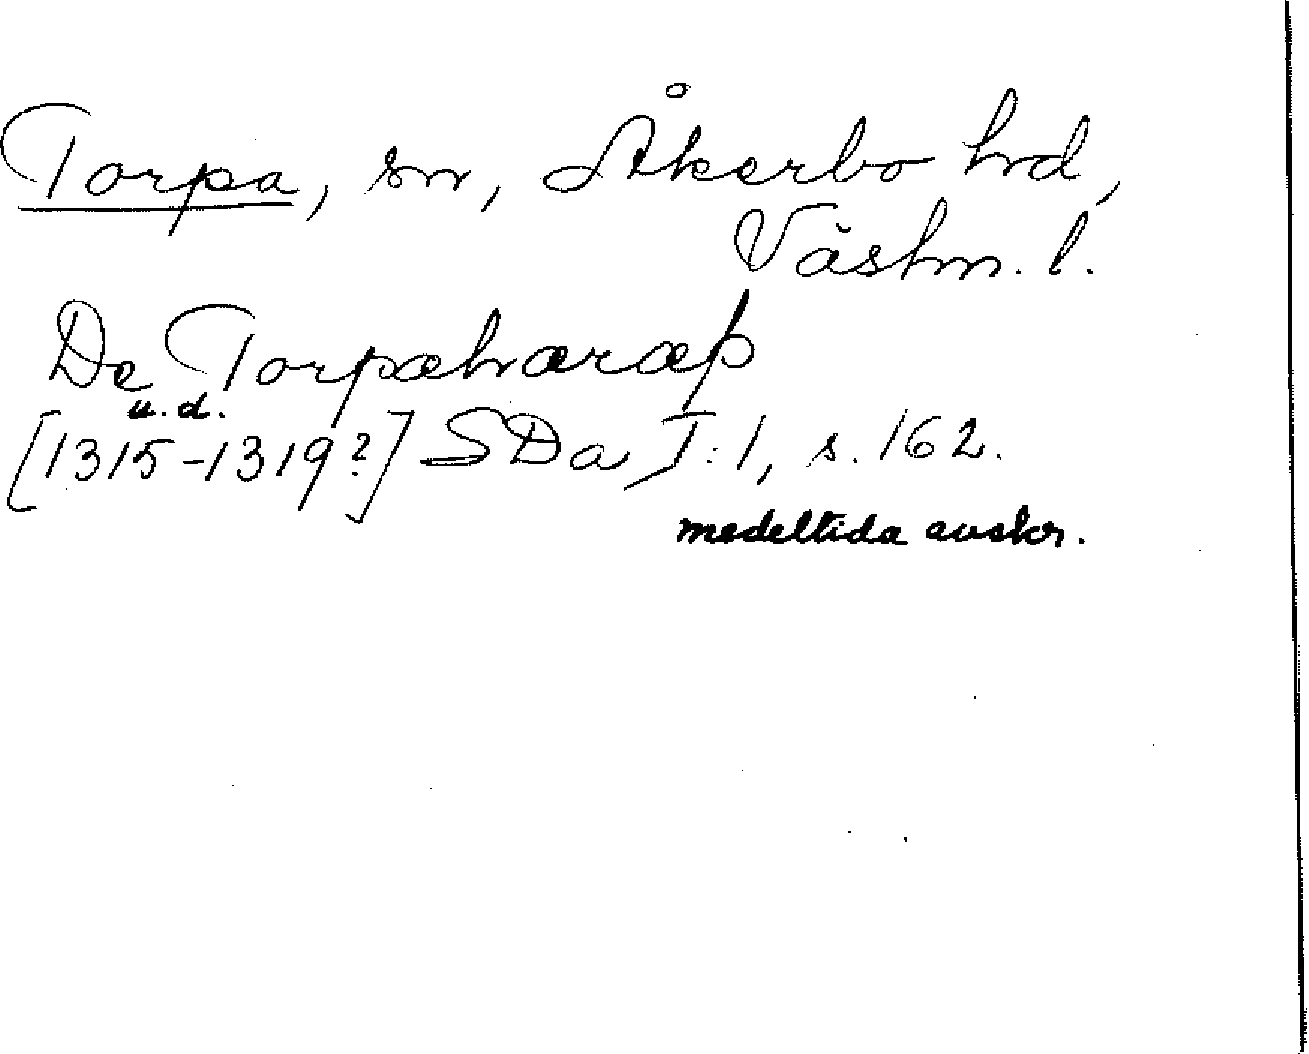 Torpa, sn, Åkerbo hd,
Västm. l.
De Torpæhæræþ
u.d.
[1315-1319?] SDa I:1, s. 162.
medeltida avskr.